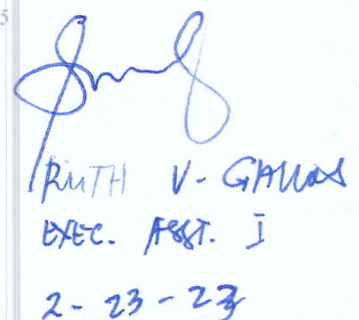 RUTH V. GALLOS
EXEC. ASST. I
2-23-23